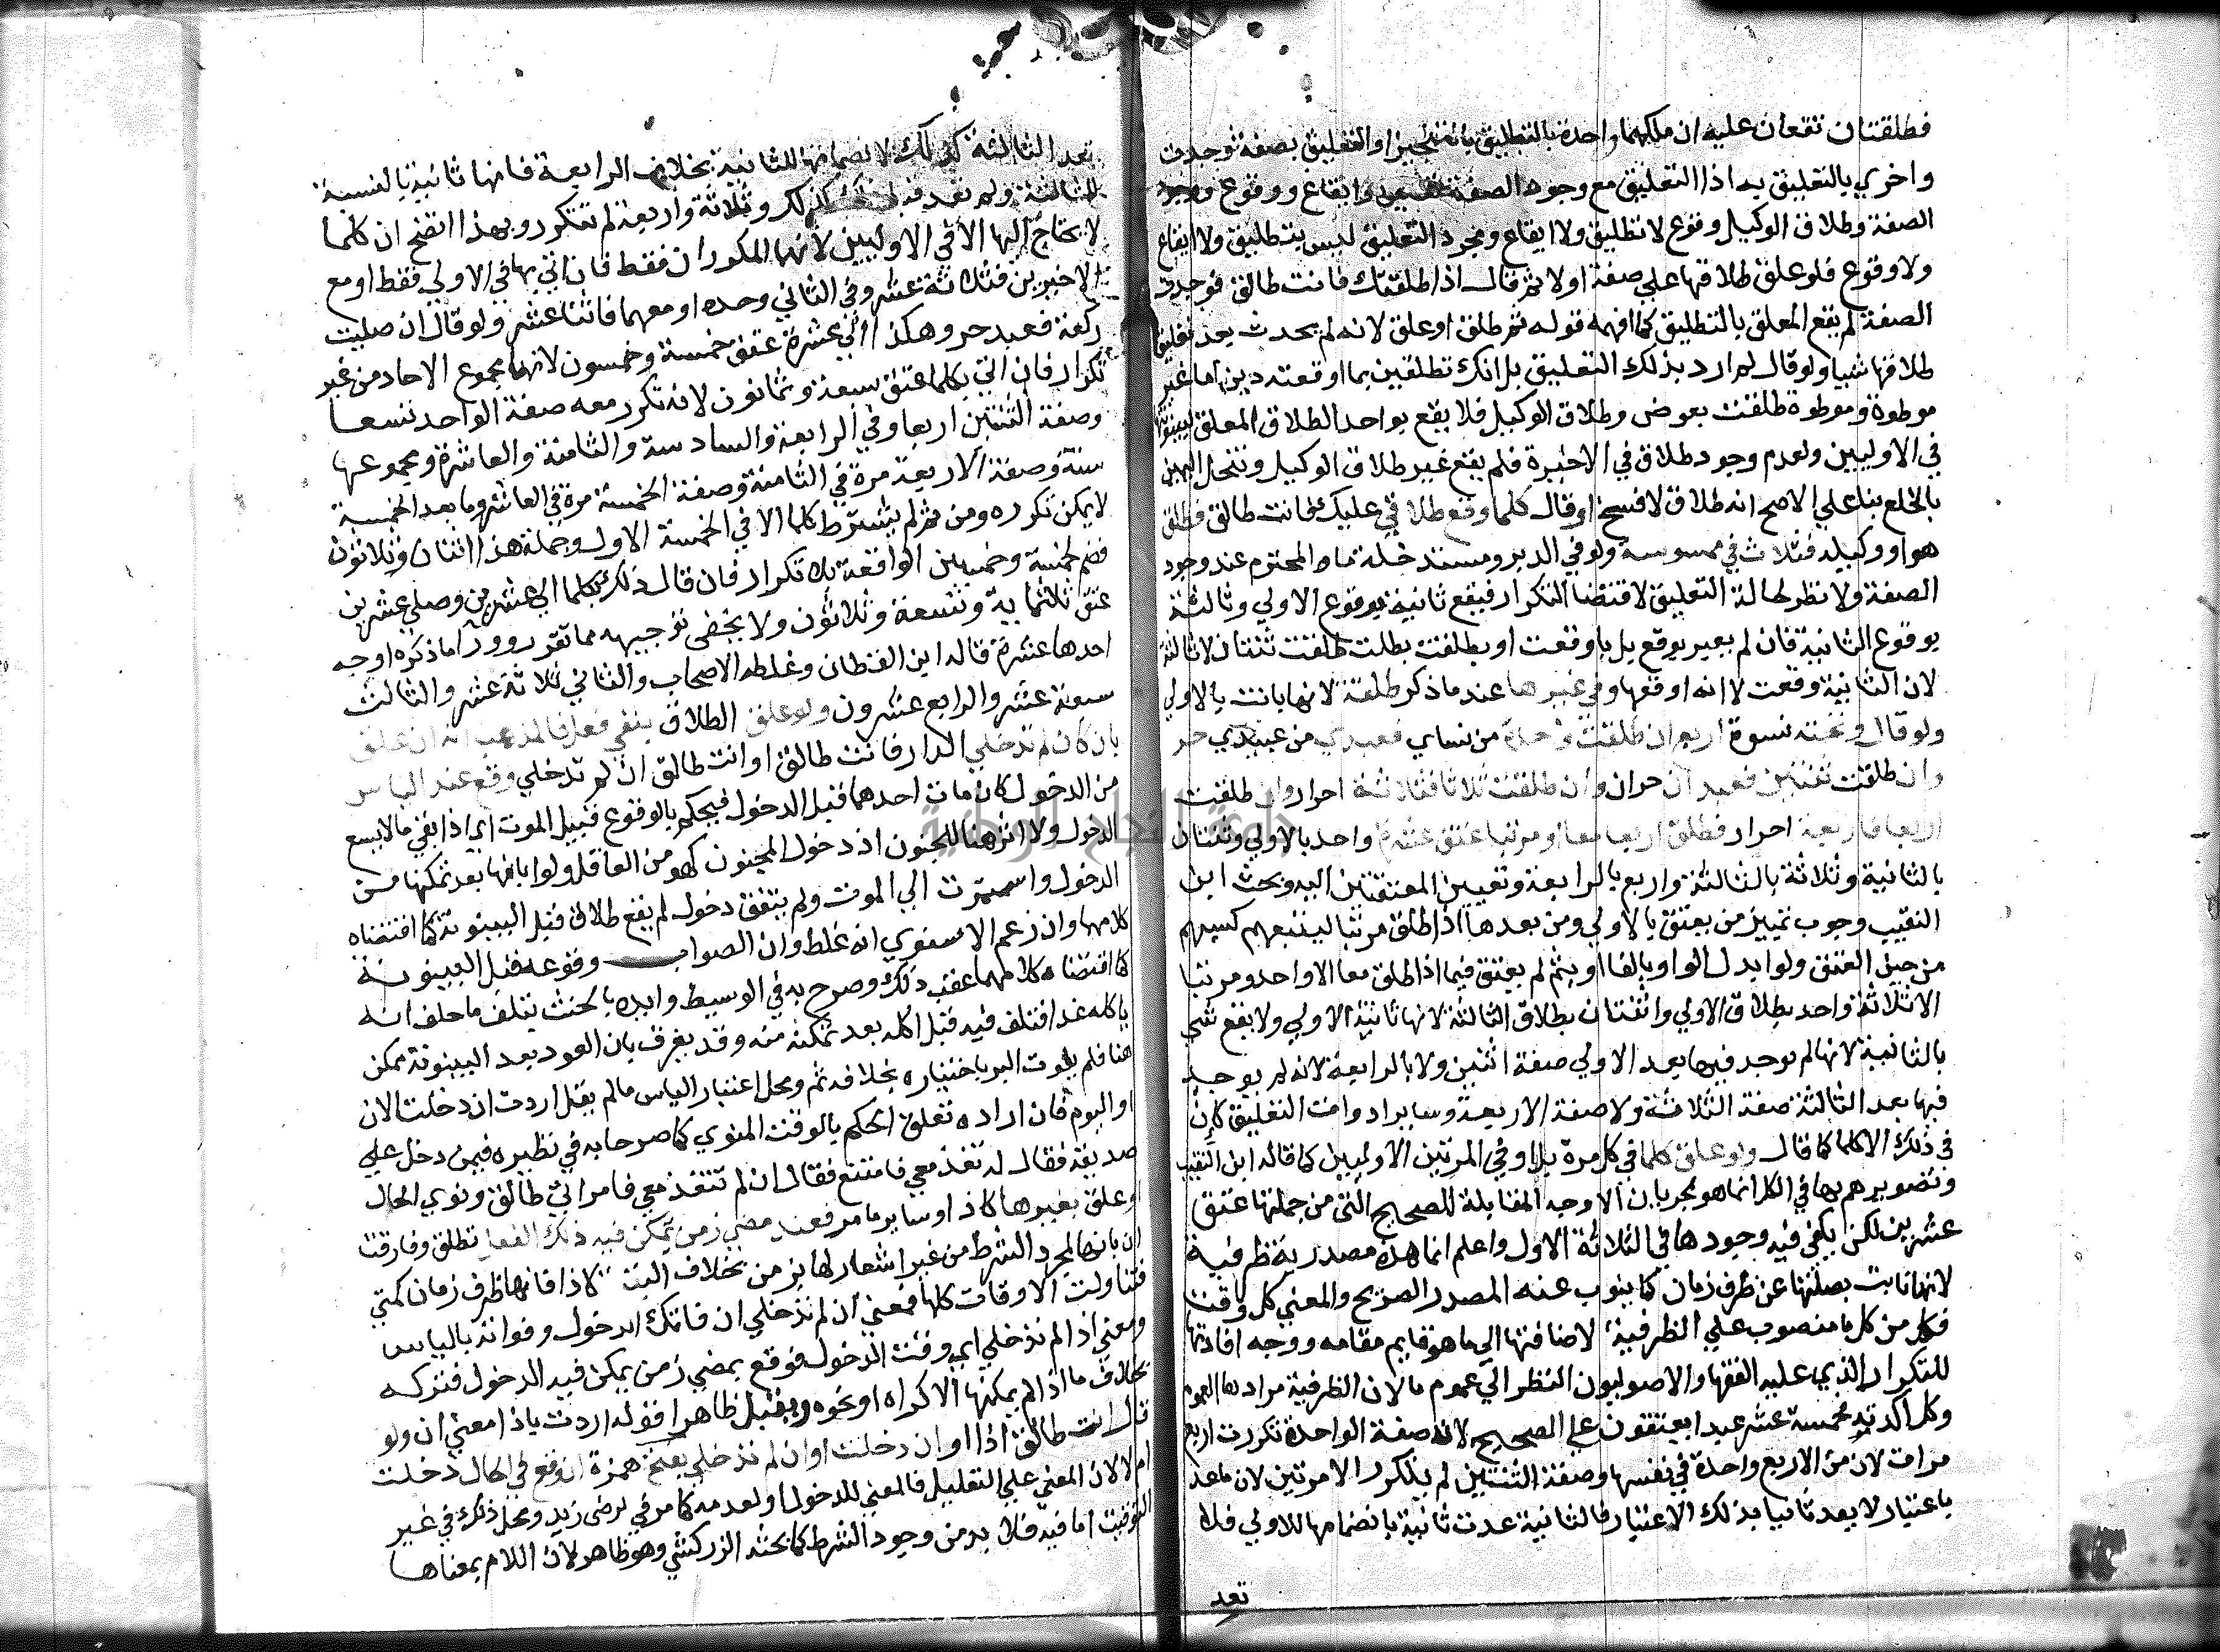 فطلقتان تقعان عليه ان ملكهما واحدة بالتطليق بالتنجيز او التعليق بصفة وجدت
واخري بالتعليق به اذ التعليق مع وجود الصفة تطليق وايقاع ووقوع ووجود
الصفة وطلاق الوكيل وقوع لا تطليق ولا ايقاع ومجرد التعليق ليس بتطليق ولا ايقاع
ولا وقوع فلو علق طلاقها علي صفة اولا ثم قال اذا طلقتك فانت طالق فوجدت
الصفة لم يقع المعلق بالتطليق كما افهمه قوله ثم طلق او علق لانه لم يحدث بعد تعليق
طلاقها شيا ولو قال لم ارد بذلك التعليق بل انك تطلقين بما اوقعته دين اما غير
موطوة وموطوة طلقت بعوض وطلاق الوكيل فلا يقع بواحد الطلاق المعلق لبينونتها
في الاوليين ولعدم وجود طلاق في الاخيرة فلم يقع غير طلاق الوكيل وتنحل اليمين
بالخلع بنا علي الاصح انه طلاق لا فسخ او قال كلما وقع طلاقي عليك فانت طالق فطلق
هو او وكيله فثلاث في ممسوسة ولو في الدبر ومستدخلة ماه المحترم عند وجود
الصفة ولا نظر لحالة التعليق لاقتضا التكرار فيقع ثانية بوقوع الاولي وثالثة
بوقوع الثانية فان لم يعبر بوقع بل باوقعت او بطلقت بطلت طلقت ثنتان لا ثالثة
لان الثانية وقعت لا انه اوقعها وفي غيرها عند ما ذكر طلقة لانها بانت بالاولي
ولو قال وتحته نسوة اربع ان طلقت واحدة من نساي فعبدي من عبيدي حر
وان طلقت ثنتين فعبدان حران وان طلقت ثلاثا فثلاثة احرار وان طلقت
اربعا فاربعة احرار فطلق اربعا معا او مرتبا عتق عشرة واحد بالاولي وثنتان
بالثانية وثلاثة بالثالثة واربع بالرابعة وتعيين المعتقين اليه وبحث ابن
النقيب وجوب تمييز من يعتق بالاولي ومن بعدها اذا طلق مرتبا ليتبعهم كسبهم
من حين العتق ولو ابدل الواو بالفا او بثم لم يعتق فيما اذا طلق معا الا واحد ومرتبا
الا ثلاثة واحد بطلاق الاولي واثنتان بطلاق الثالثة لانها ثانية الاولي ولا يقع شي
بالثانية لانها لم يوجد فيها بعد الاولي صفة اثنين ولا بالرابعة لانه لم يوجد
فيها بعد الثالثة صفة الثلاثة ولا صفة الاربعة وساير ادوات التعليق كان
في ذلك الا كلما كما قال ولو علق كلما في كل مرة بل او في المرتين الاوليين كما قاله ابن النقيب
وتصويرهم بها في الكل انما هو لجريان الاوجه المقابلة للصحيح التي من جملتها عتق
عشرين لكن يكفي فيه وجودها في الثلاثة الاول واعلم ان ما هذه مصدرية ظرفية
لانها نابت بصلتها عن ظرف زمان كما ينوب عنه المصدر الصريح والمعني كل وقت
فكل من كل ما منصوب علي الظرفية لاضافتها الي ما هو قايم مقامه ووجه افادتها
للتكرار الذي عليه الفقها والاصوليون النظر الي عموم ما لان الظرفية مراد بها العموم
وكل اكدته فخمسة عشر عبدا يعتقون علي الصحيح لان صفة الواحدة تكررت اربع
مرات لان من الاربع واحدة في نفسها وصفة الثنتين لم يتكرر الا مرتين لان ما عد
باعتبار لا يعد ثانيا بذلك الاعتبار فالثانية عدت ثانية بانضمامها للاولي فلا
تعد
تعد الثالثة كذلك لانضمامها للثانية بخلاف الرابعة فانها ثانية بالنسبة
للثالثة ولم تعد قبل ذلك كذلك وثلاثة واربعة لم تتكرر وبهذا اتضح ان كلما
لا يحتاج اليها الا في الاوليين لانهما المكرران فقط فان اتي بها في الاولي فقط او مع
الاخيرين فثلاثة عشر وفي الثاني وحده او معهما فاثنا عشر ولو قال ان صليت
ركعة فعبد حر وهكذا الي عشرة عتق خمسة وخمسون لانها مجموع الاحاد من غير
تكرار فان اتي بكلما عتق سبعة وثمانون لانه تكرر معه صفة الواحد تسعا
وصفة الثنتين اربعا وفي الرابعة والسادسة والثامنة والعاشرة ومجموعها
ستة وصفة الاربعة مرة في الثامنة وصفة الخمسة مرة في العاشرة وما بعد الخمسة
لا يمكن تكرره ومن ثم لم يشترط كلما الا في الخمسة الاول وجملة هذا اثنان وثلاثون
فضم لخمسة وخمسين الواقعة بلا تكرار فان قال ذلك بكلما الي عشرين وصلي عشرين
عتق ثلثماية وتسعة وثلاثون ولا يخفي توجيهه مما تقرر وورا ما ذكره اوجه
احدها عشرة قاله ابن القطان وغلطه الاصحاب والثاني ثلاثة عشر والثالث
سبعة عشر والرابع عشرون ولو علق الطلاق بنفي فعل فالمذهب انه ان علق
بان كان لم تدخلي الدار فانت طالق او انت طالق ان لم تدخلي وقع عند الياس
من الدخول كان مات احدهما قبل الدخول فيحكم بالوقوع قبيل الموت اي اذا بقي ما لا يسع
الدخول ولا اثر هنا للجنون اذ دخول المجنون كهو من العاقل ولو ابانها بعد تمكنها من
الدخول واستمرت الي الموت ولم يتفق دخول لم يقع طلاق قبل البينونة كما اقتضاه
كلامهما وان زعم الاسنوي انه غلط وان الصواب وقوعه قبل البينونة
كما اقتضاه كلامهما عقب ذلك وصرح به في الوسيط وايده بالحنث بتلف ما حلف انه
ياكله غدا فتلف فيه قبل اكله بعد تمكنه منه وقد يفرق بان العود بعد البينونة ممكن
هنا فلم يفوت البر باختياره بخلافه ثم ومحل اعتبار الياس ما لم يقل اردت ان دخلت الان
او اليوم فان اراده تعلق الحكم بالوقت المنوي كما صرحا به في نظيره فيمن دخل علي
صديقه فقال له تغد معي فامتنع فقال ان لم تتغد معي فامراتي طالق ونوي الحال
وعلق بغيرها كاذا وساير ما مر فعند مضي زمن يمكن فيه ذلك الفعل تطلق وفارقتا
ان بانها لمجرد الشرط من غير اشعار لها بزمن بخلاف البقية كاذا فانها ظرف زمان كمتي
فتناولت الاوقات كلها فمعني ان لم تدخلي ان فاتك الدخول وفواته بالياس
ومعني اذا لم تدخلي اي وقت الدخول فوقع بمضي زمن يمكن فيه الدخول فتركه
بخلاف ما اذا لم يمكنها الاكراه او نحوه ويقبل ظاهرا قوله اردت باذا معني ان ولو
قال انت طالق اذا او ان دخلت او ان لم تدخلي بفتح همزة ان وقع في الحال دخلت
ام لا لان المعني علي التعليل فالمعني للدخول او لعدمه كما مر في لرضي زيد ومحل ذلك في غير
التوقيت اما فيه فلا بد من وجود الشرط كما بحثه الزركشي وهو ظاهر لان اللام بمعناها